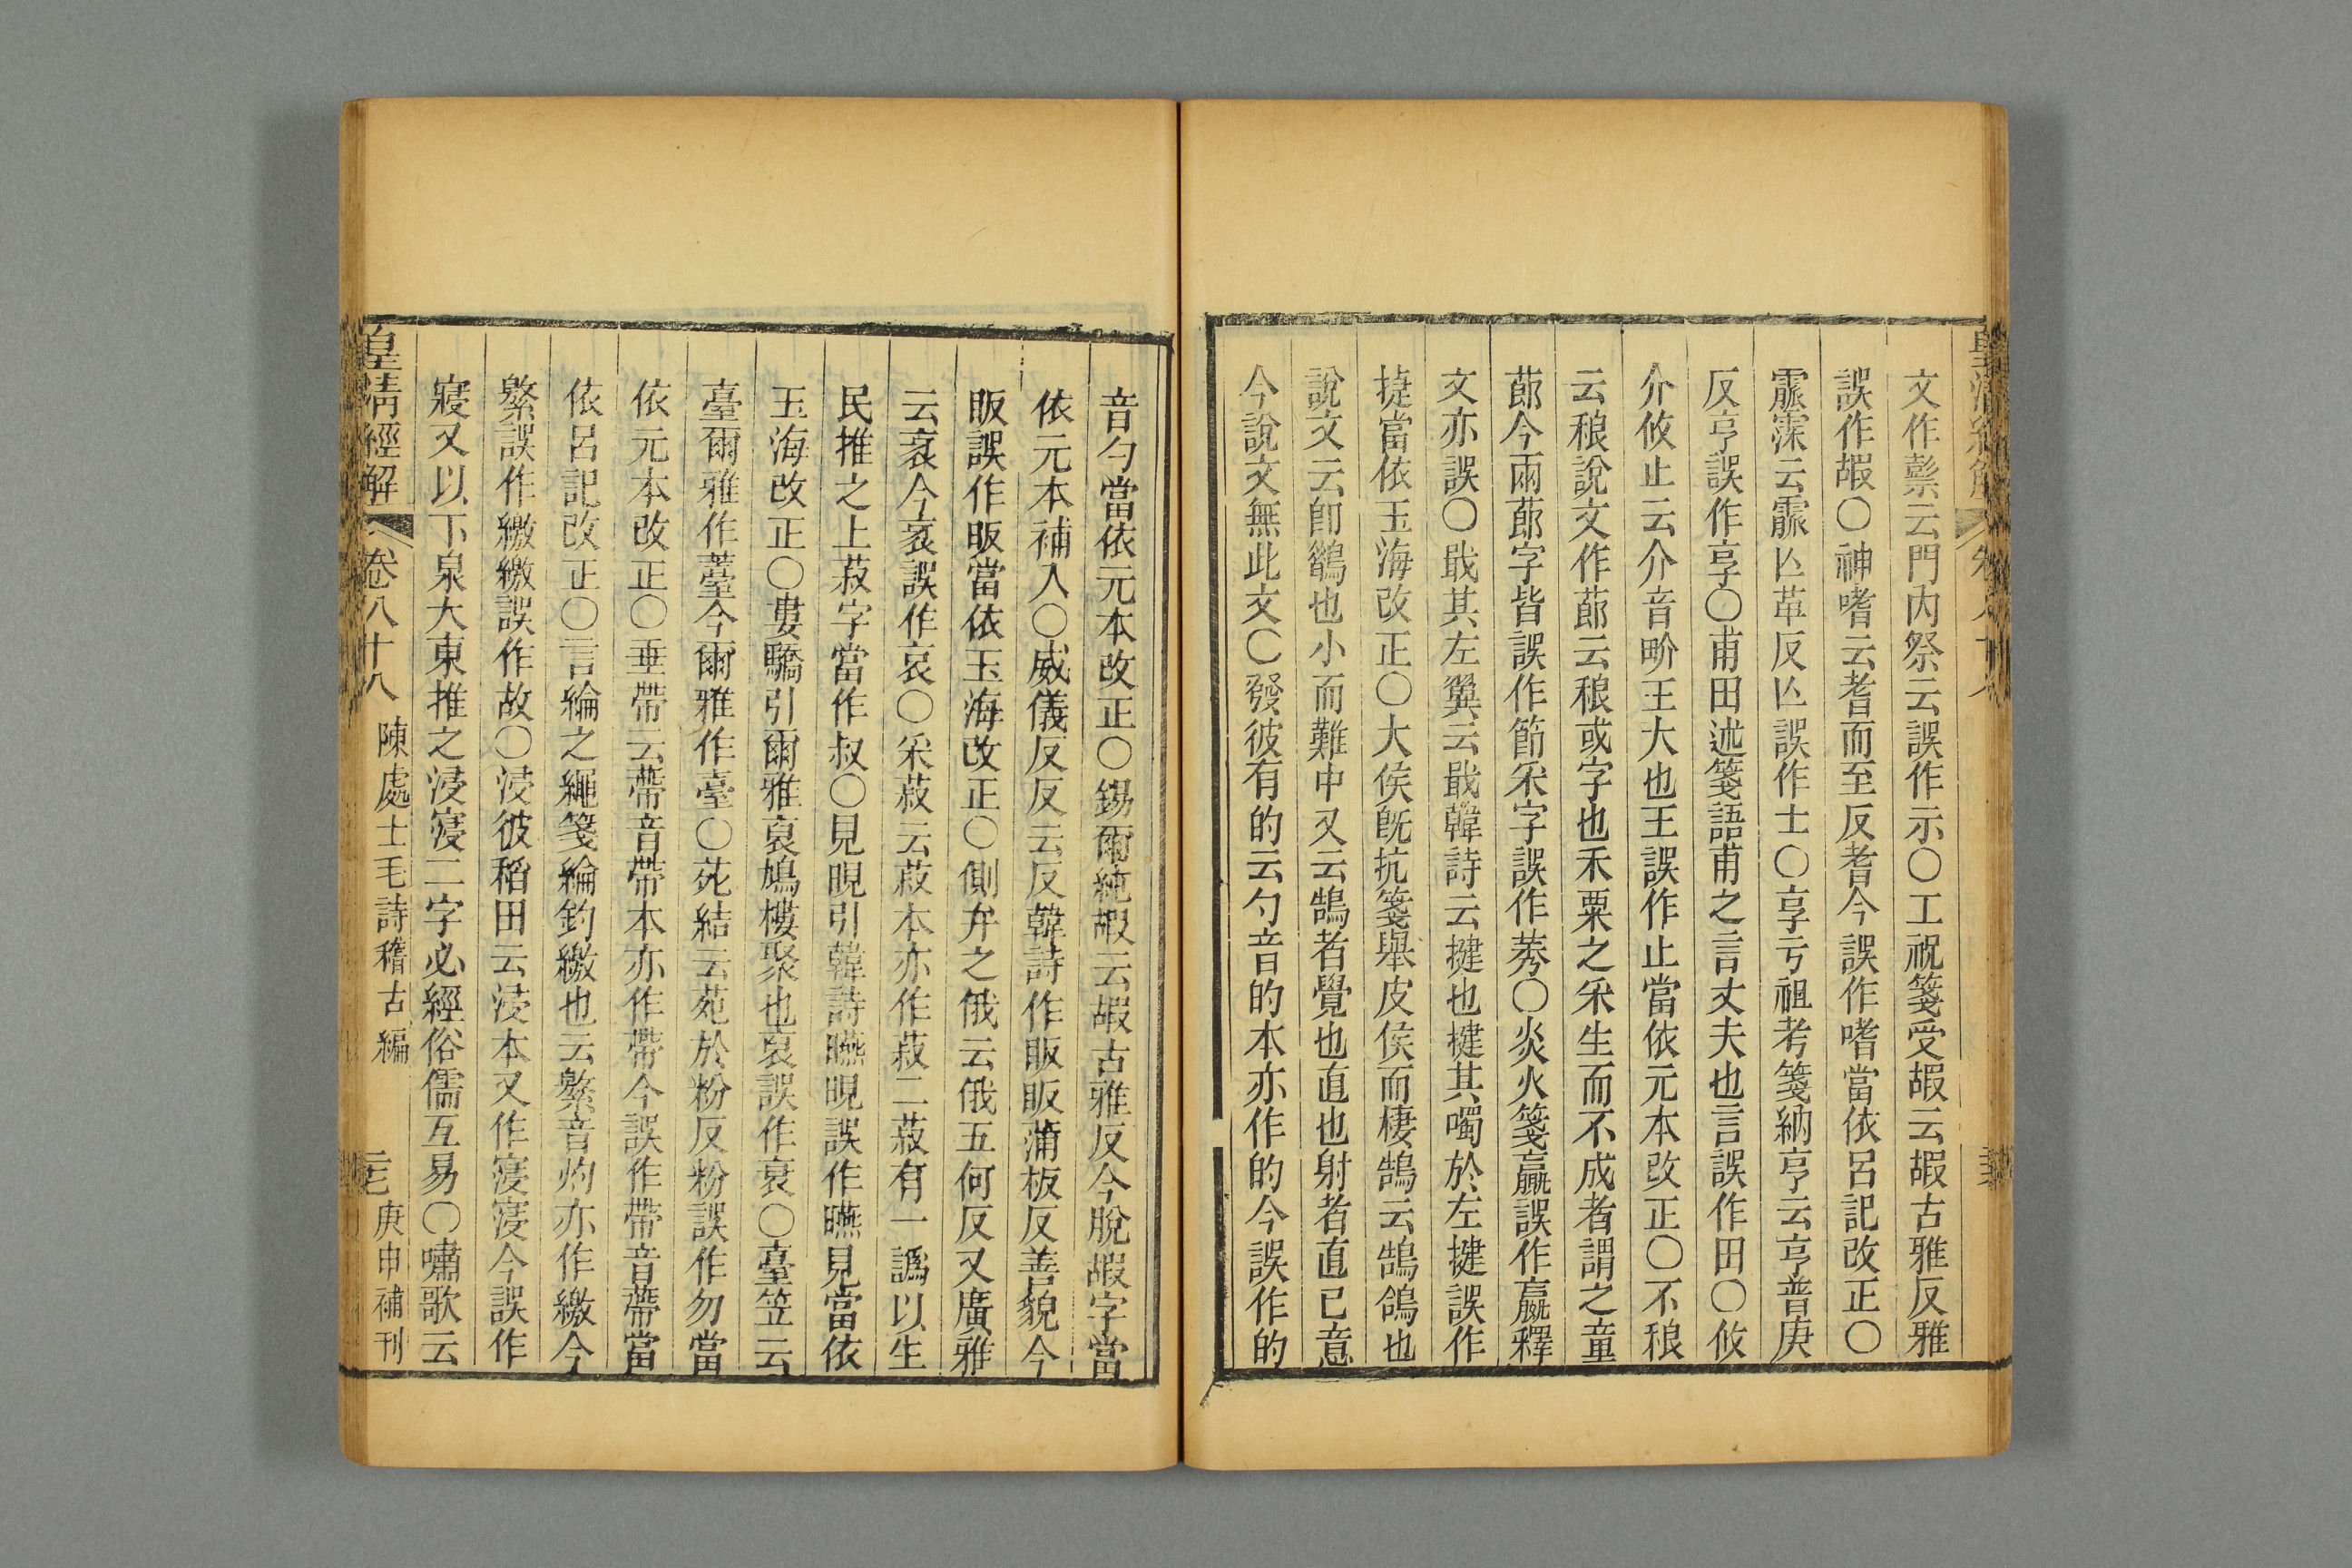 文作鬃云門内祭云誤作示○工祝箋受嘏云嘏古雅反雅
誤作嘏○神嗜云耆而至反耆今誤作嗜當依呂記改正○
霢霂云霢亾革反亾誤作士○享亏祖考箋納亨云亨普庚
反亨誤作享○甫田述箋語甫之言丈夫也言誤作田○攸
介攸止云介音畍王大也王誤作止當依元本改正○不稂
云稂說文作蓈云稂或字也禾粟之采生而不成者謂之童
蓈今兩蓈字皆誤作節采字誤作莠○炎火箋贏誤作嬴釋
文亦誤○戢其左翼云戢韓詩云捷也捷其噣於左揵誤作
捷當依玉海改正○大侯旣抗箋舉皮侯而棲鵠云鵠鴿也
說文云卽鶴也小而難中又云鵠者覺也直也射者直已意
今說文無此文○發彼有的云勺音的本亦作的今誤作的
音勺當依元本改正○錫爾純嘏云嘏古雅反今脫嘏字當
依元本補入○威儀反反云反韓詩作眅眅蒲板反善貌今
眅誤作昄當依玉海改正○側弁之俄云俄五何反又廣雅
云衺今衺誤作哀○采菽云菽本亦作菽二菽有一譌以生
民推之上菽字當作叔○見晛引韓詩曣晛誤作曣見當依
玉海改正○婁驕引爾雅裒鳩樓聚也裒誤作衰○臺笠云
臺爾雅作薹今爾雅作臺○苑結云苑於粉反粉誤作勿當
依元本改正○垂帶云帶音帶本亦作帶今誤作帶音帶當
依呂記改正○言綸之繩箋綸釣繳也云繁音灼亦作繳今
繁誤作繳繳誤作故○浸彼稻田云浸本又作寖寖今誤作
寢又以下泉大東推之浸寖二字必經俗儒互易○嘯歌云
皇清經解 卷八十八 陳處士毛詩稽古編 庚申補刊